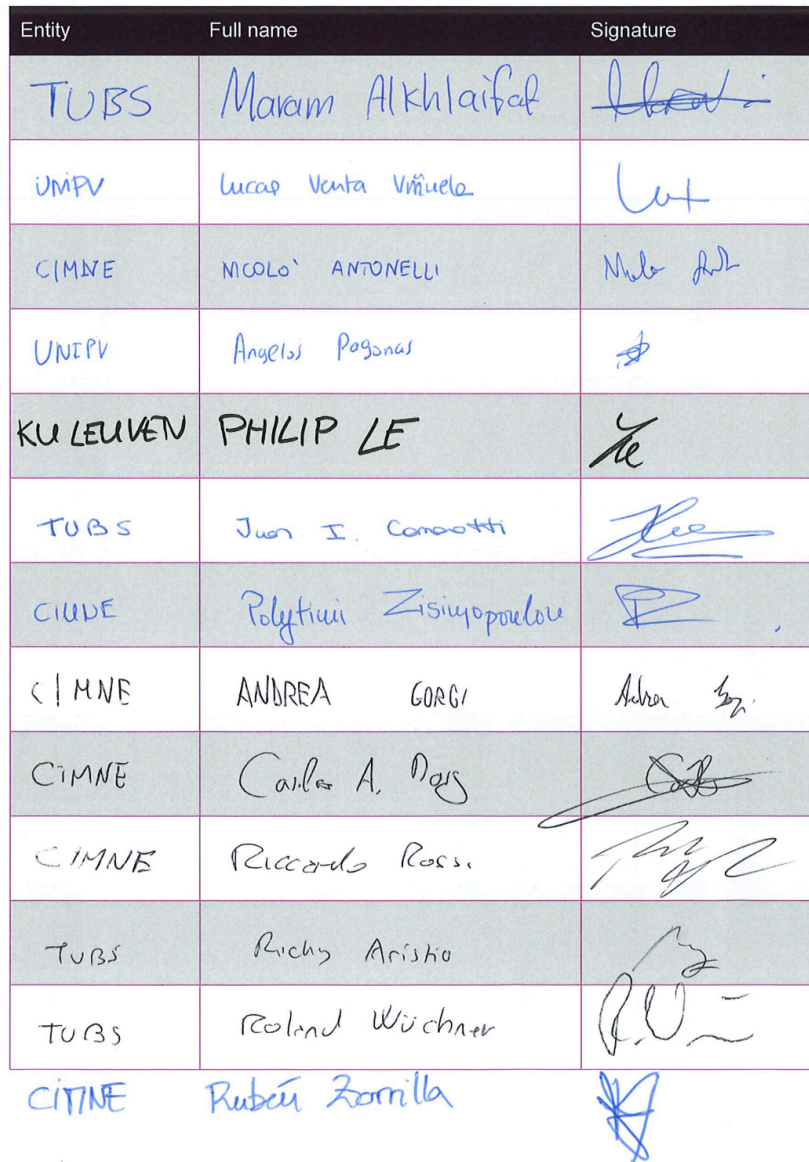 Entity Full name Signature
TUBS Maram Alkhlaifat
UNIPV Lucas Venta Viñuela
CIMNE NICOLO' ANTONELLI
UNIPV Angelos Pogonas
KU LEUVEN PHILIP LE
TUBS Juan I. Camarotti
CIMNE Polytimi Zisimopoulou
CIMNE ANDREA GORGI
CIMNE Carlos A.
CIMNE Riccardo Rossi
TUBS Richy Aristio
TUBS Roland Wüchner
CIMNE Rubén Zorrilla